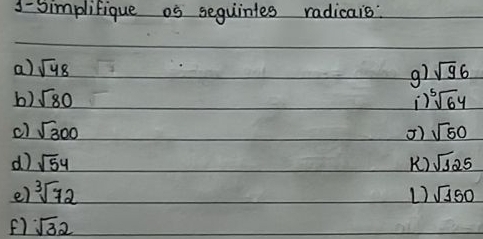 1-Simplifique os seguintes radicais:
a) √48
b) √80
c) √300
d) √54
e) ³√72
f) √32
g) √96
i) ⁵√64
J) √50
K) √125
L) √150